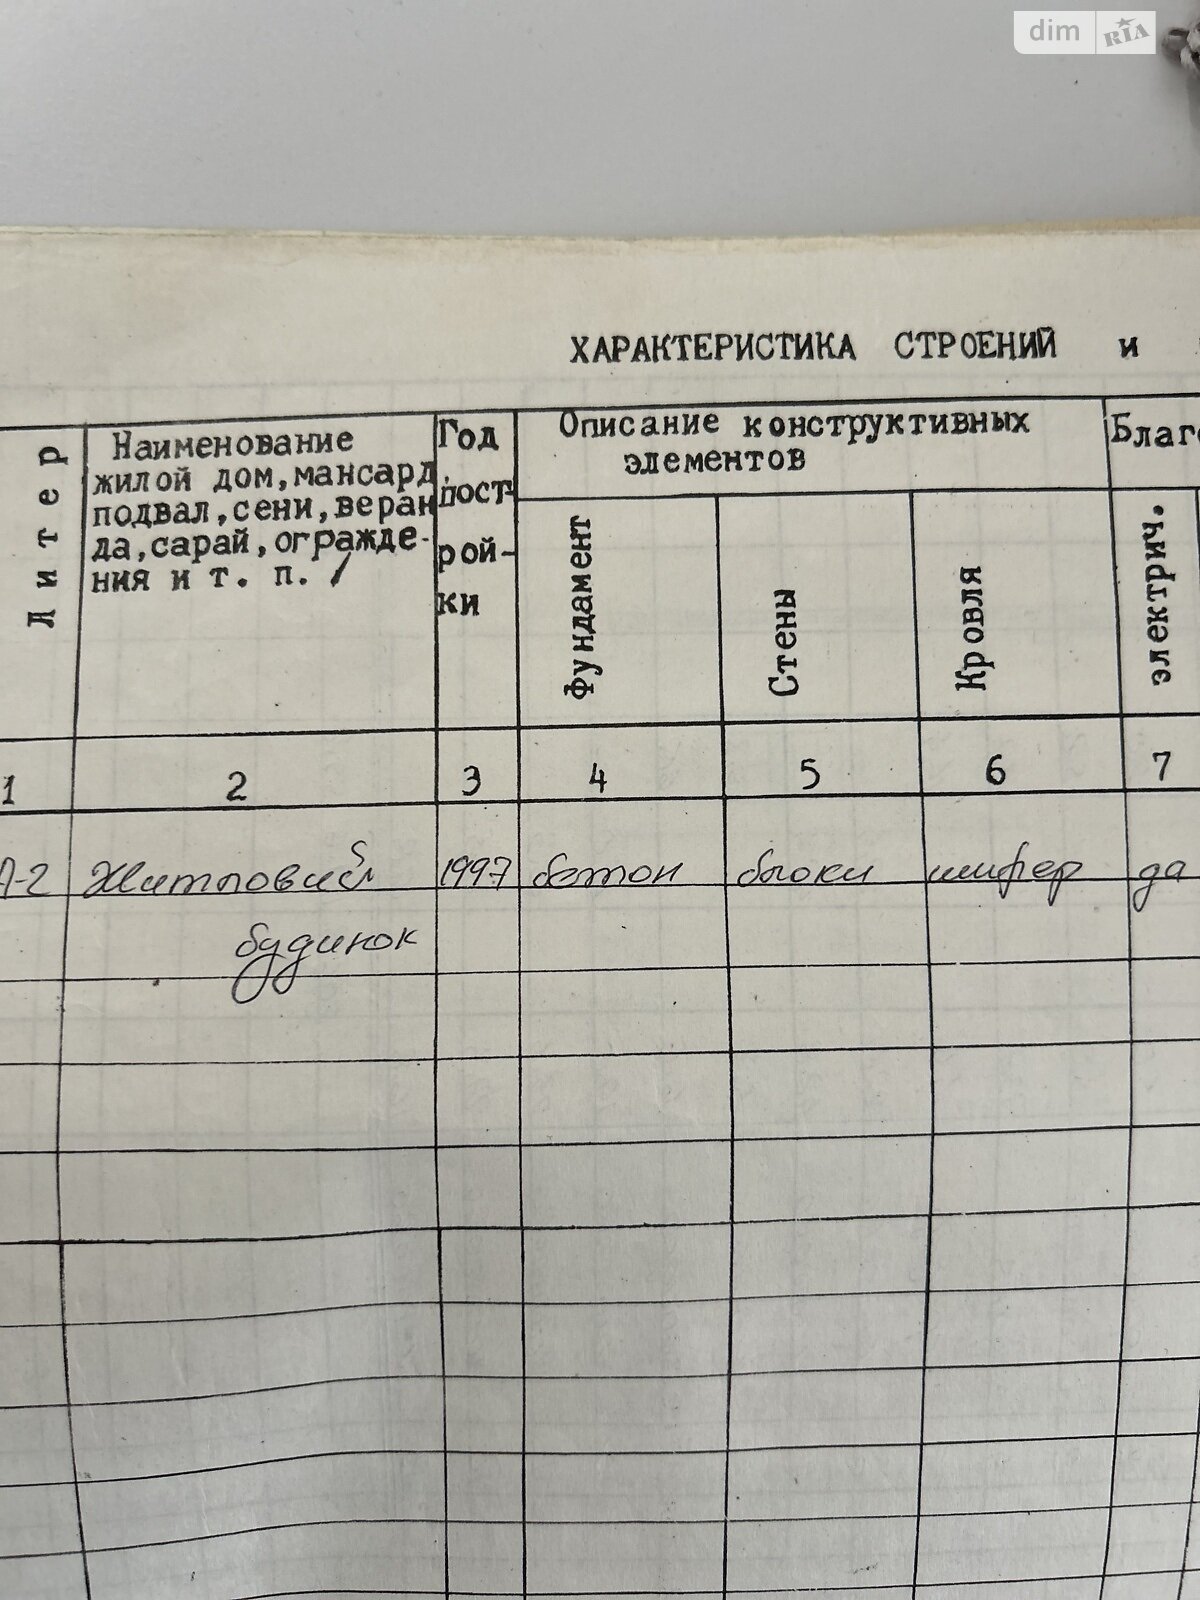 dim RIA
ХАРАКТЕРИСТИКА СТРОЕНИЙ и
Литер
Наименование
жилой дом, мансард
подвал, сени, веран
да, сарай, огражде-
ния и т. п. /
Год
пост-
рой-
ки
Описание конструктивных
элементов
Фундамент
Стены
Кровля
Благо
электрич.
1 2 3 4 5 6 7
А-2 Житловий 1997 бетон блоки шифер да
будинок